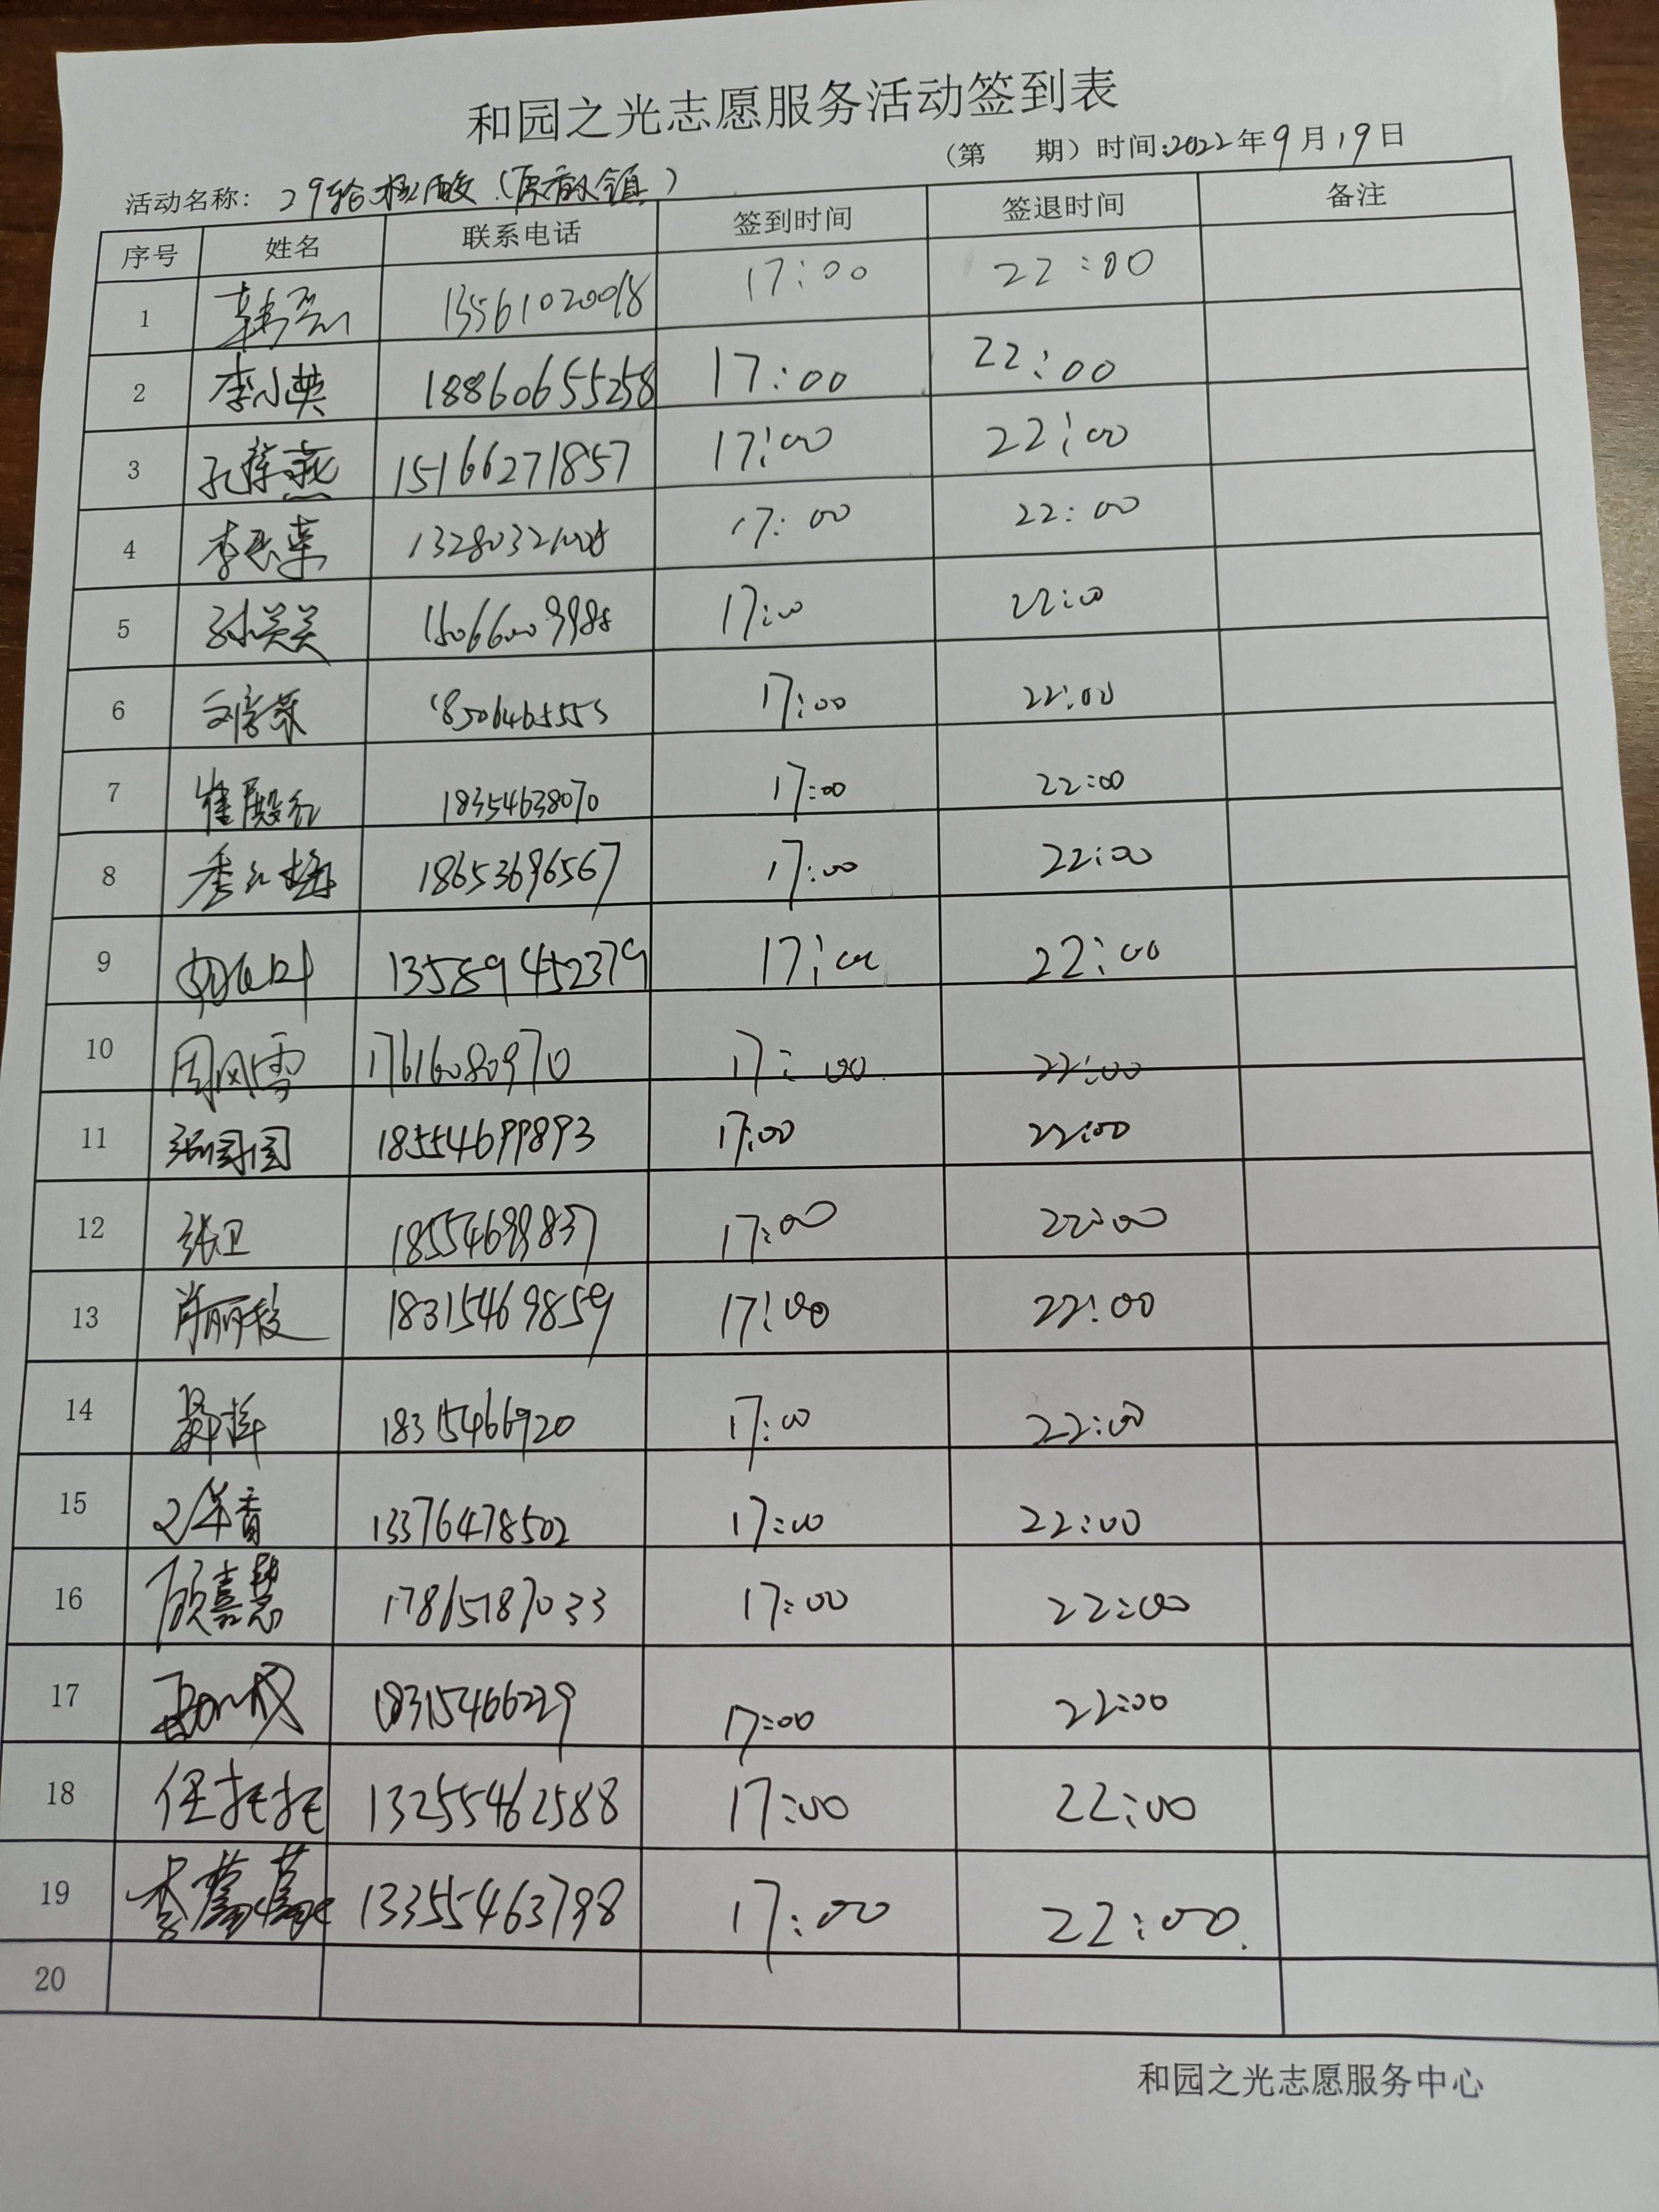 和园之光志愿服务活动签到表
(第 期) 时间:2022年9月19日
活动名称: 29轮核酸(原香小镇)
序号 姓名 联系电话 签到时间 签退时间 备注
1 13561020018 17:00 22:00
2 李小英 18860655258 17:00 22:00
3 燕 15166271857 17:00 22:00
4 李 17:00 22:00
5 孙 17:00 22:00
6 刘 17:00 22:00
7 崔殿红 18354638070 17:00 22:00
8 季红梅 18653696567 17:00 22:00
9 13589452379 17:00 22:00
10 周风雪 17616080970 17:00 22:00
11 张园园 18554699893 17:00 22:00
12 张卫 18554699837 17:00 22:00
13 肖丽 18315469859 17:00 22:00
14 18315466920 17:00 22:00
15 香 13376478502 17:00 22:00
16 顾嘉慧 17865187033 17:00 22:00
17 18315466229 17:00 22:00
18 任托托 13255462588 17:00 22:00
19 李 13355463798 17:00 22:00.
20
和园之光志愿服务中心